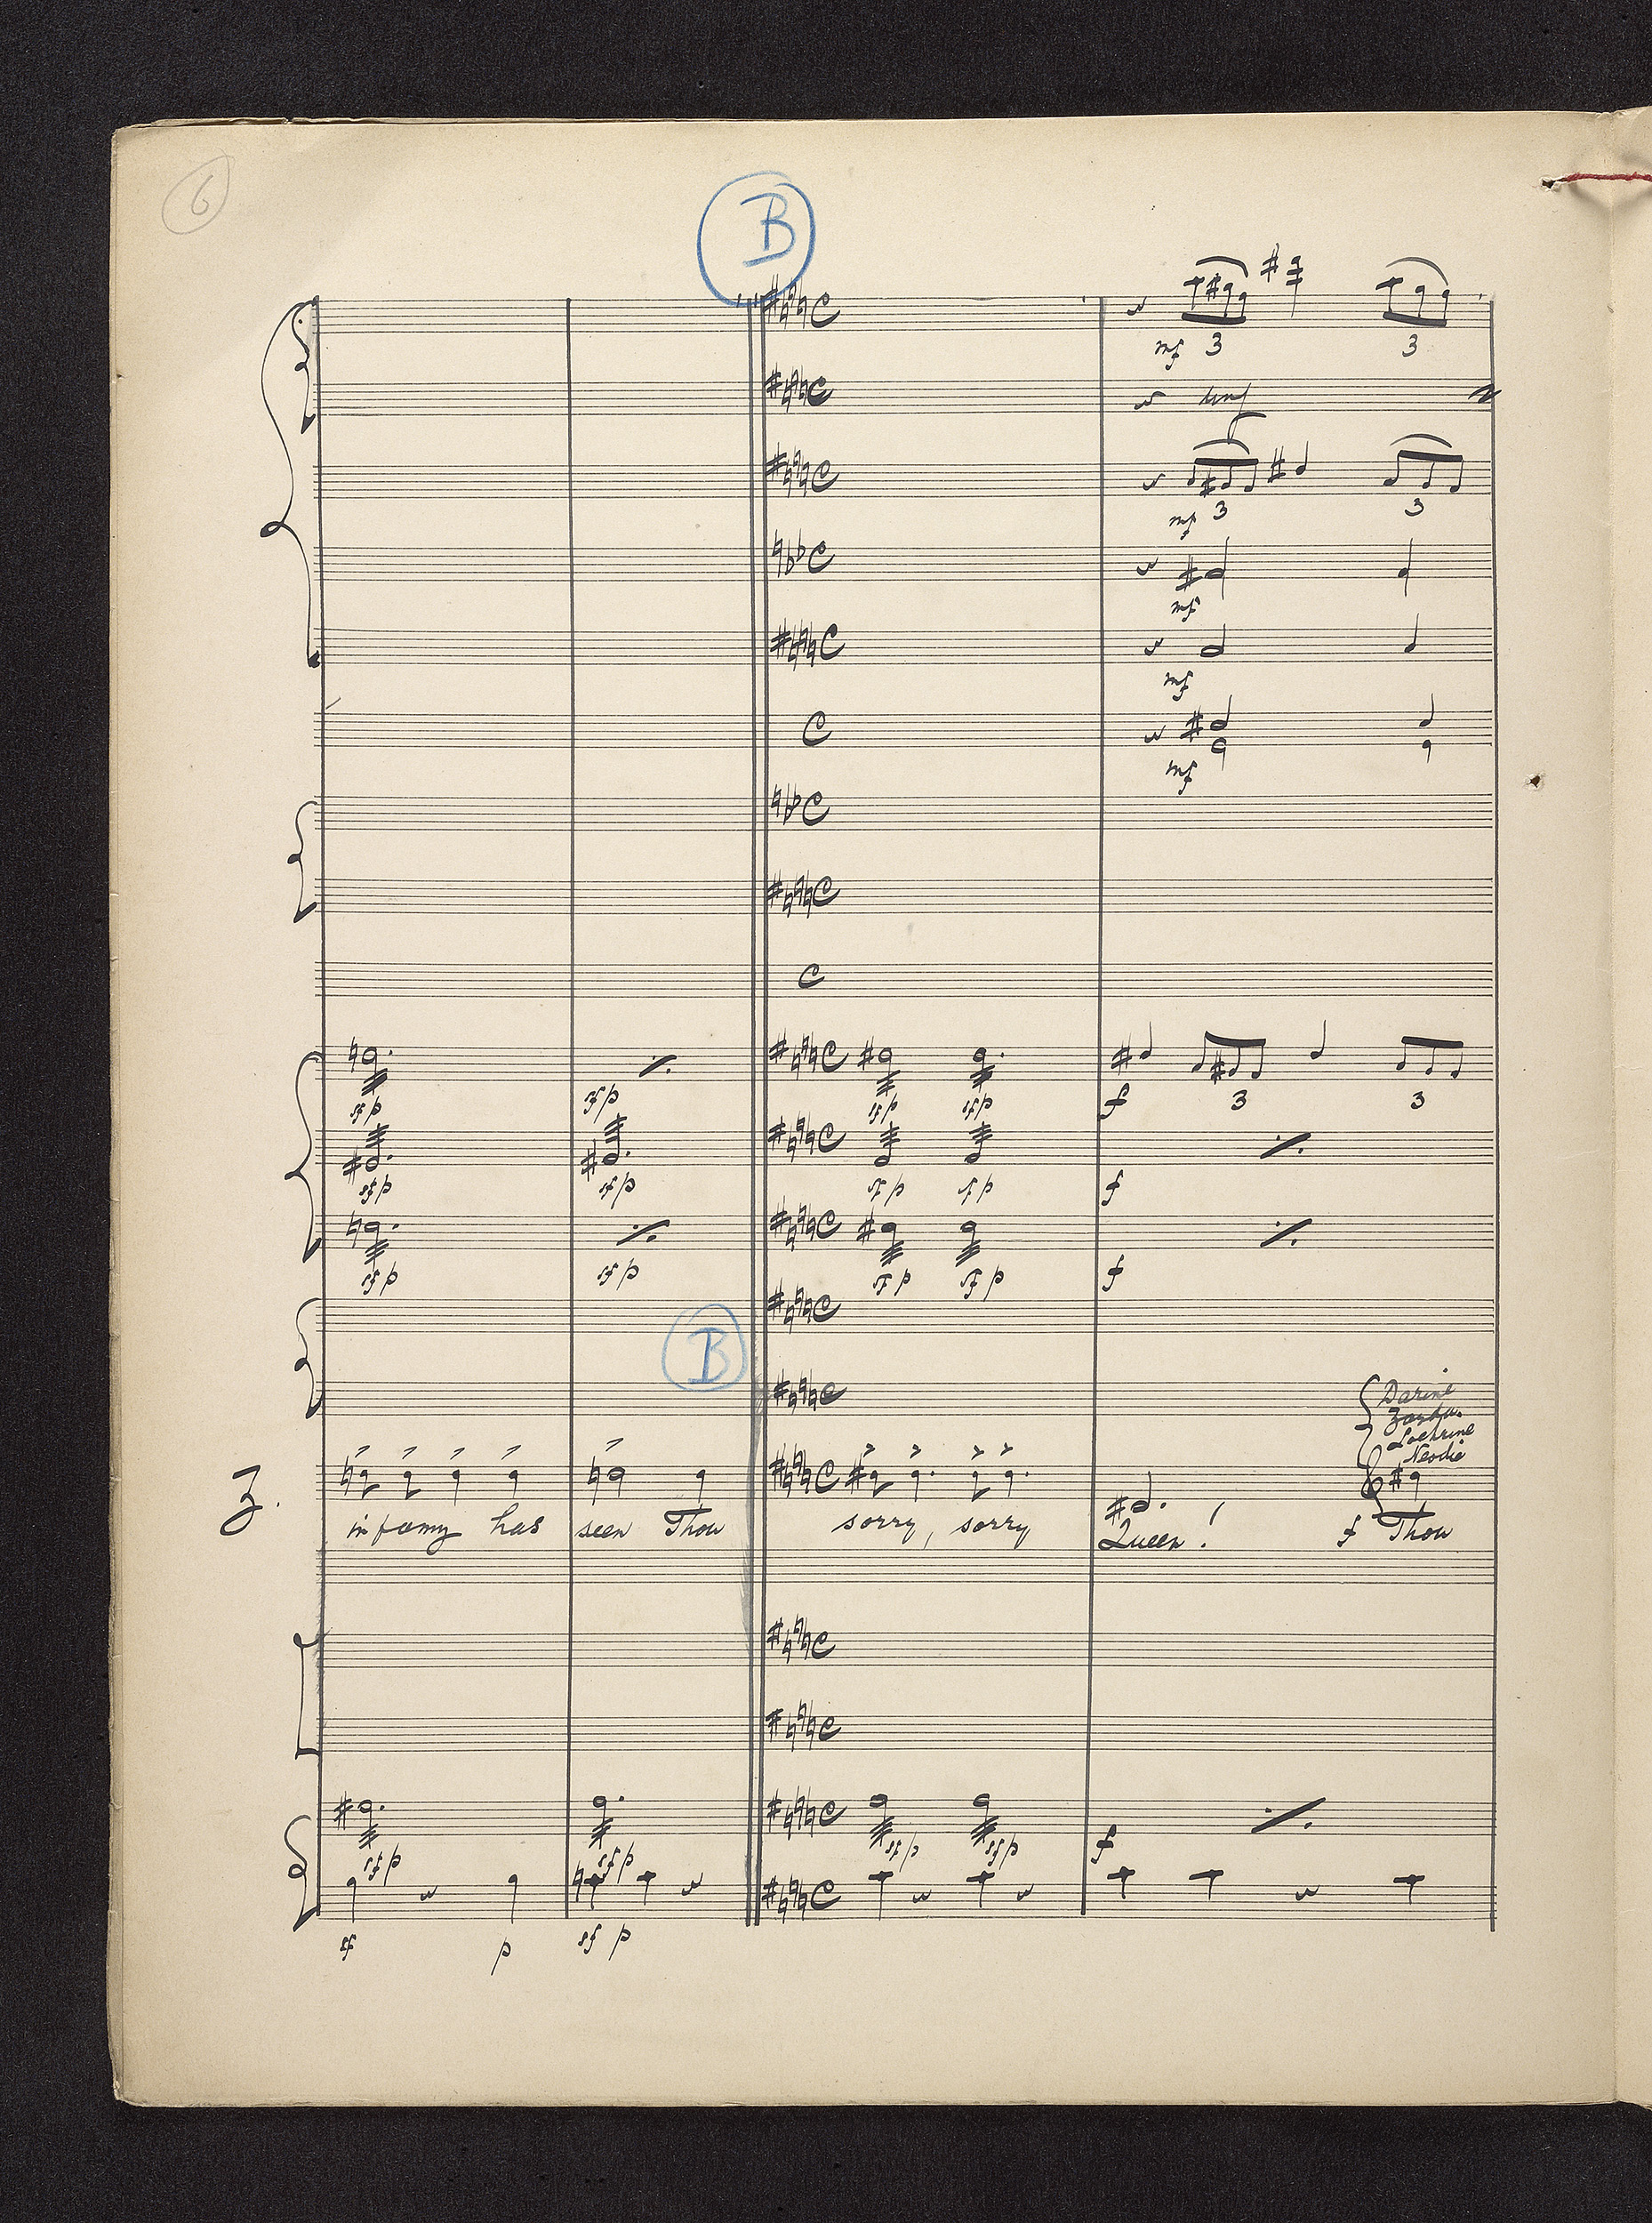 6
B
mf 3 3
unis
mf 3 3
mf
mf
mf
sfp sfp sfp sfp f 3 3
sfp sfp sfp sfp f
sfp sfp sfp sfp f
B
Darine
Neodie
Z.
infamy has seen Thou sorry, sorry Queen! f Thou
sfp sfp sfp sfp f
sf p sf p